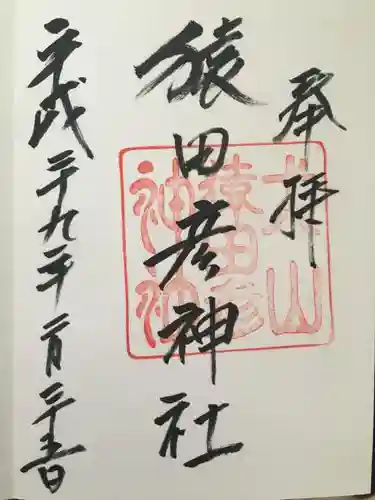 奉拝
猿田彦神社
平成二十九年二月二十五日
山
猿田彦
神